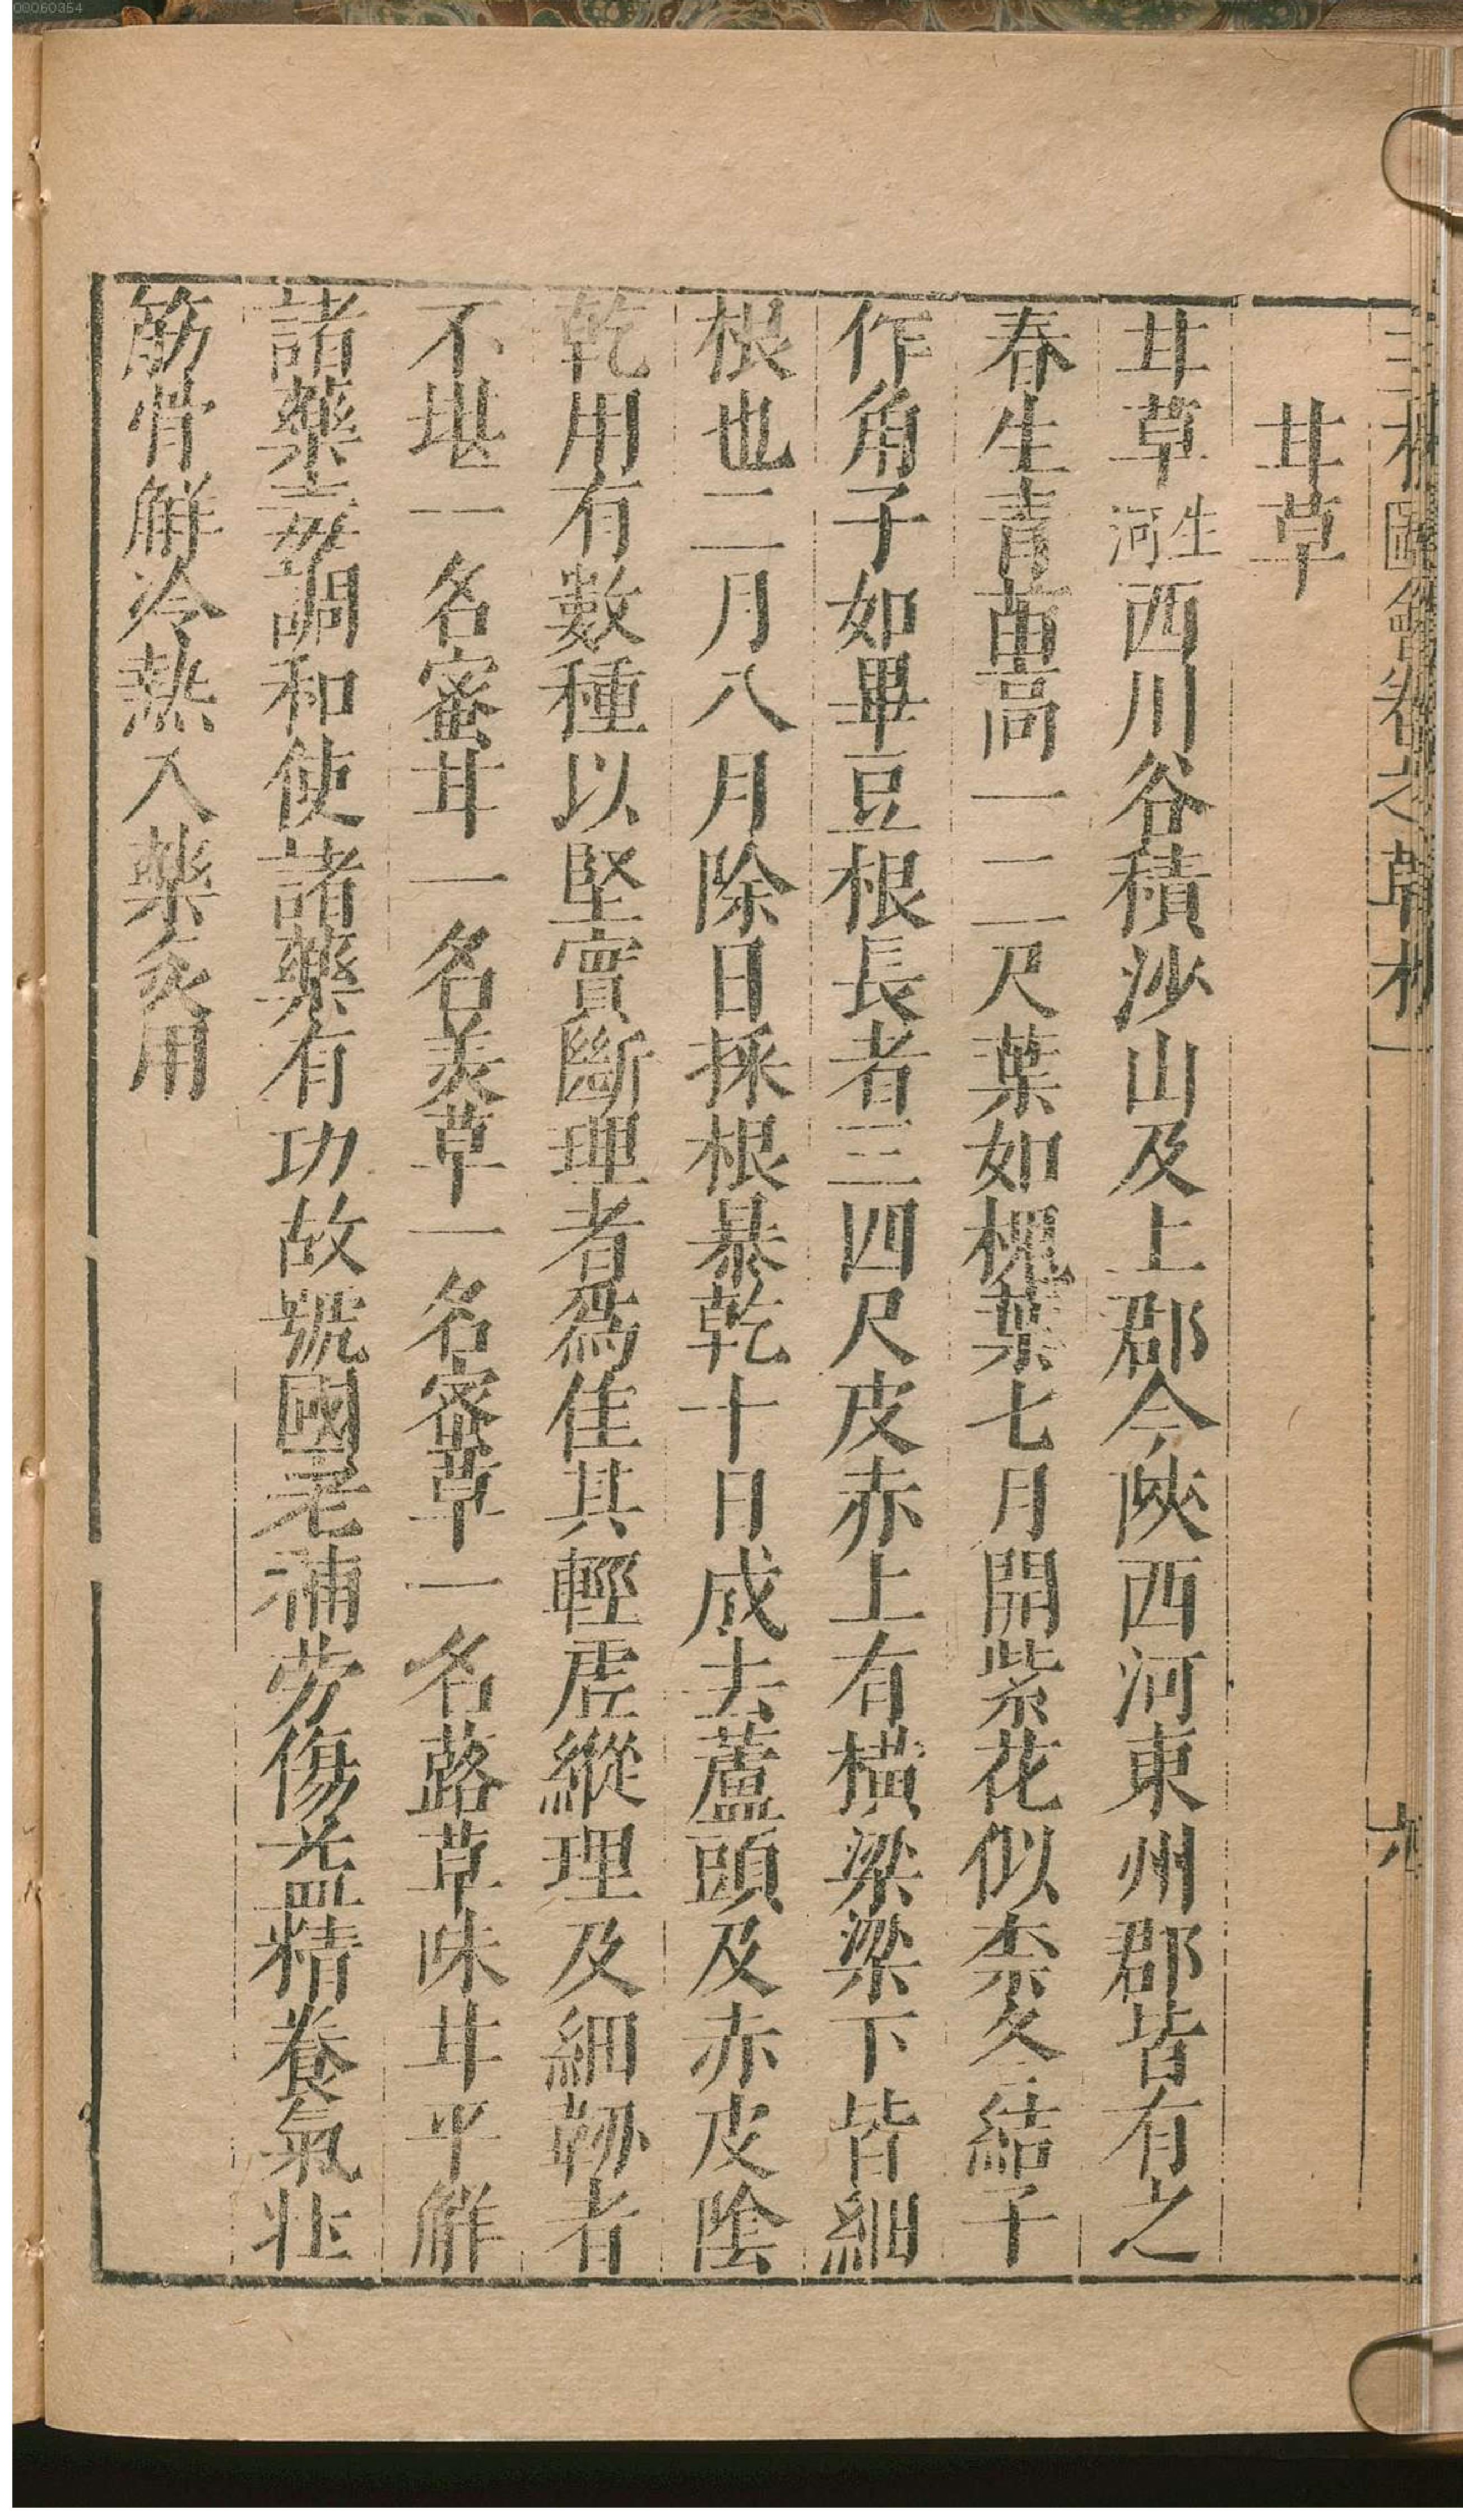 00060354
三才圖會卷之草木一
九
甘草
甘草生河西川谷積沙山及上郡今陜西河東州郡皆有之
春生青苗高一二尺葉如槐葉七月開紫花似柰冬結子
作角子如畢豆根長者三四尺皮赤上有橫梁梁下皆細
根也二月八月除日採根暴乾十日成去蘆頭及赤皮陰
乾用有數種以堅實斷理者爲佳其輕虛縱理及細韌者
不堪一名蜜甘一名美草一名密草一名蕗草味甘平解
諸藥毒調和使諸藥有功故號國老補勞傷益精養氣壯
筋骨解冷熱入藥炙用